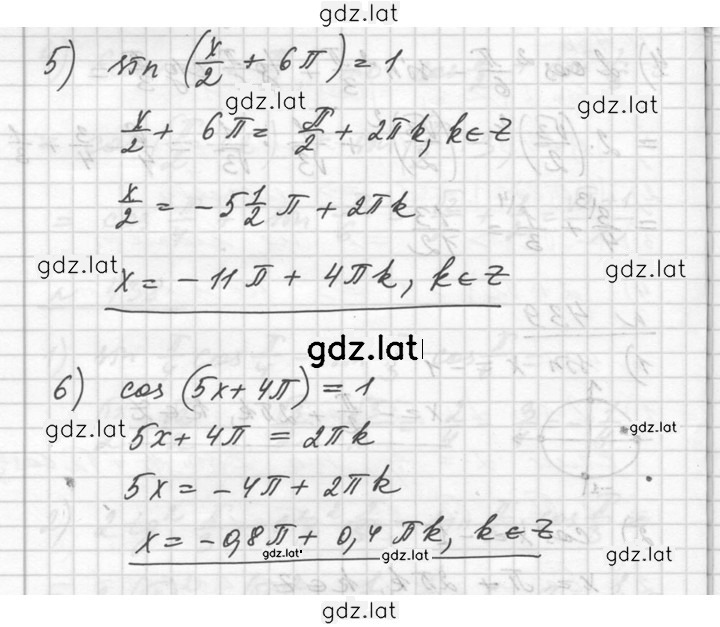 gdz.lat
5) sin (x/2 + 6π) = 1
gdz.lat
gdz.lat
x/2 + 6π = π/2 + 2πk, k∈Z
x/2 = -5 1/2 π + 2πk
gdz.lat
x = -11π + 4πk, k∈Z
gdz.lat
gdz.lat
6) cos (5x + 4π) = 1
gdz.lat
5x + 4π = 2πk
gdz.lat
5x = -4π + 2πk
x = -0,8π + 0,4πk, k∈Z
gdz.lat
gdz.lat
gdz.lat
gdz.lat